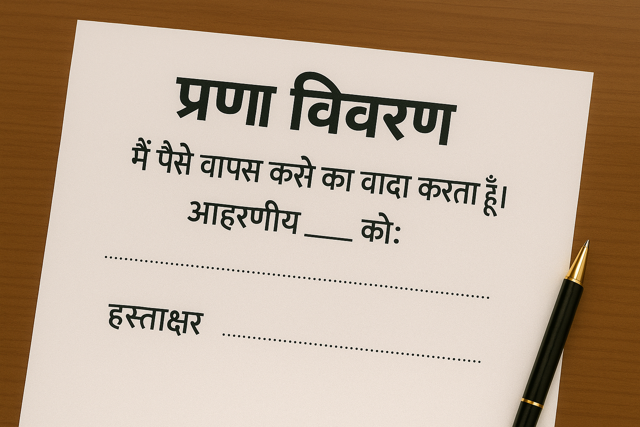 प्रणा विवरण
मैं पैसे वापस कसे का वादा करता हूँ।
आहरणीय ___ को:
हस्ताक्षर